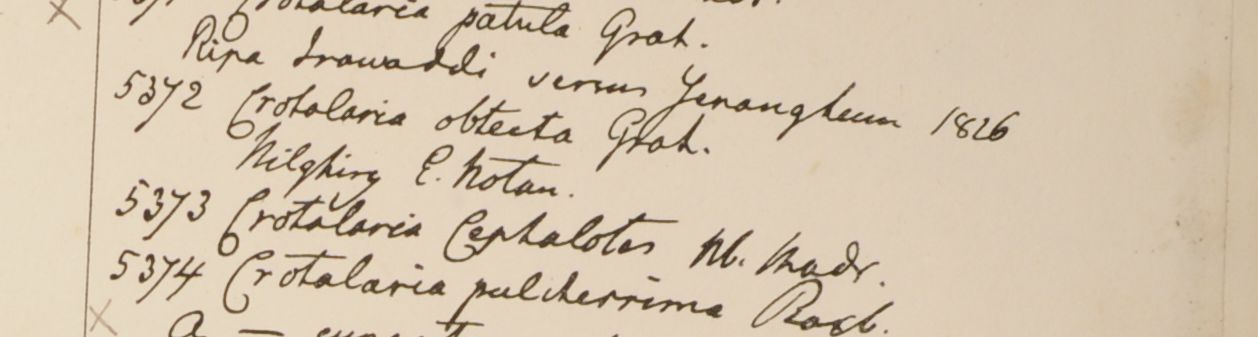 Crotalaria patula Grah.
Ripa Irawaddi versus Yenangheum 1826
5372 Crotalaria obtecta Grah.
Nilghiry E. Noton.
5373 Crotalaria Cephalotes Hb. Madr.
5374 Crotalaria pulcherrima Roxb.
a —